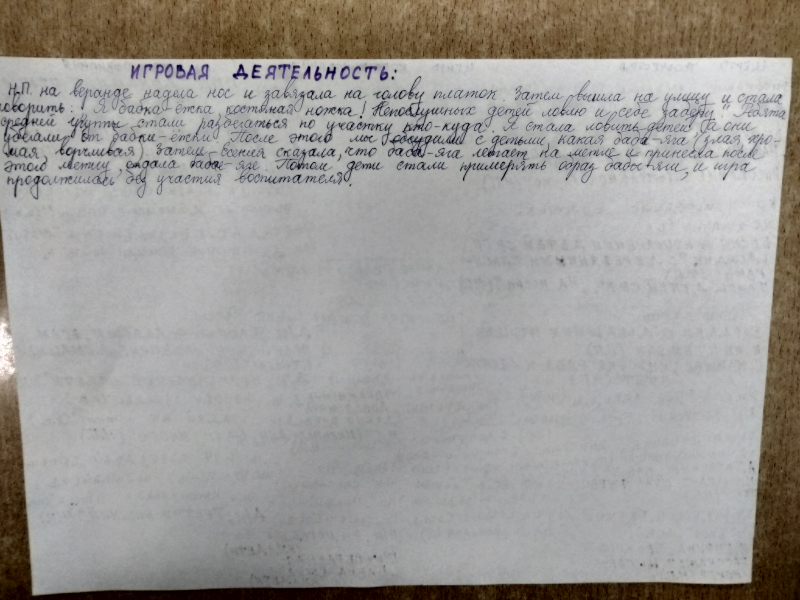 ИГРОВАЯ ДЕЯТЕЛЬНОСТЬ:
Н.П. на веранде надела нос и завязала на голову платок. Затем вышла на улицу и стала
говорить: Я бабка ёжка костяная ножка! Непослушных детей ловлю и себе заберу! Ребята
средней группы стали разбегаться по участку кто-куда. Я стала ловить детей, а они
убегали от бабки-ёжки. После этого мы обсудили с детьми, какая баба-яга (злая хро-
мая, ворчливая) Затем Есения сказала, что баба-яга летает на метле и принесла после
этого метлу, отдала бабе-яге. Потом дети стали примерять образ бабы-яги, и игра
продолжилась без участия воспитателя.